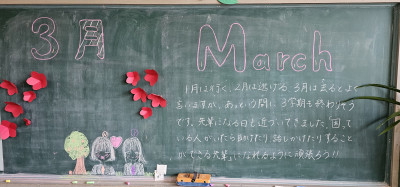 3月
March
1月は行く、2月は逃げる、3月は去るとよく
言いますが、あっという間に3学期も終わりそう
です。先輩になる日も近づいてきました。困って
いる人がいたら助けたり話しかけたりすること
ができる先輩になれるように頑張ろう!!